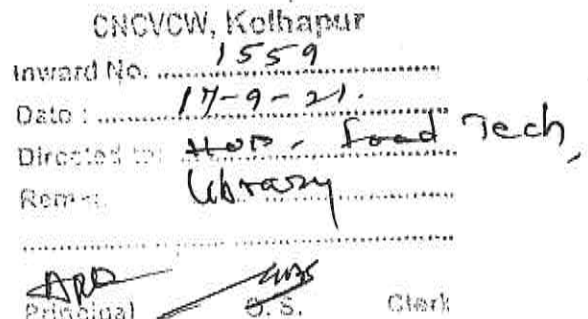 CNCVCW, Kolhapur
Inward No. 1559
Date : 17-9-21.
Directed to: HOD, Food Tech,
Library
Principal O. S. Clerk